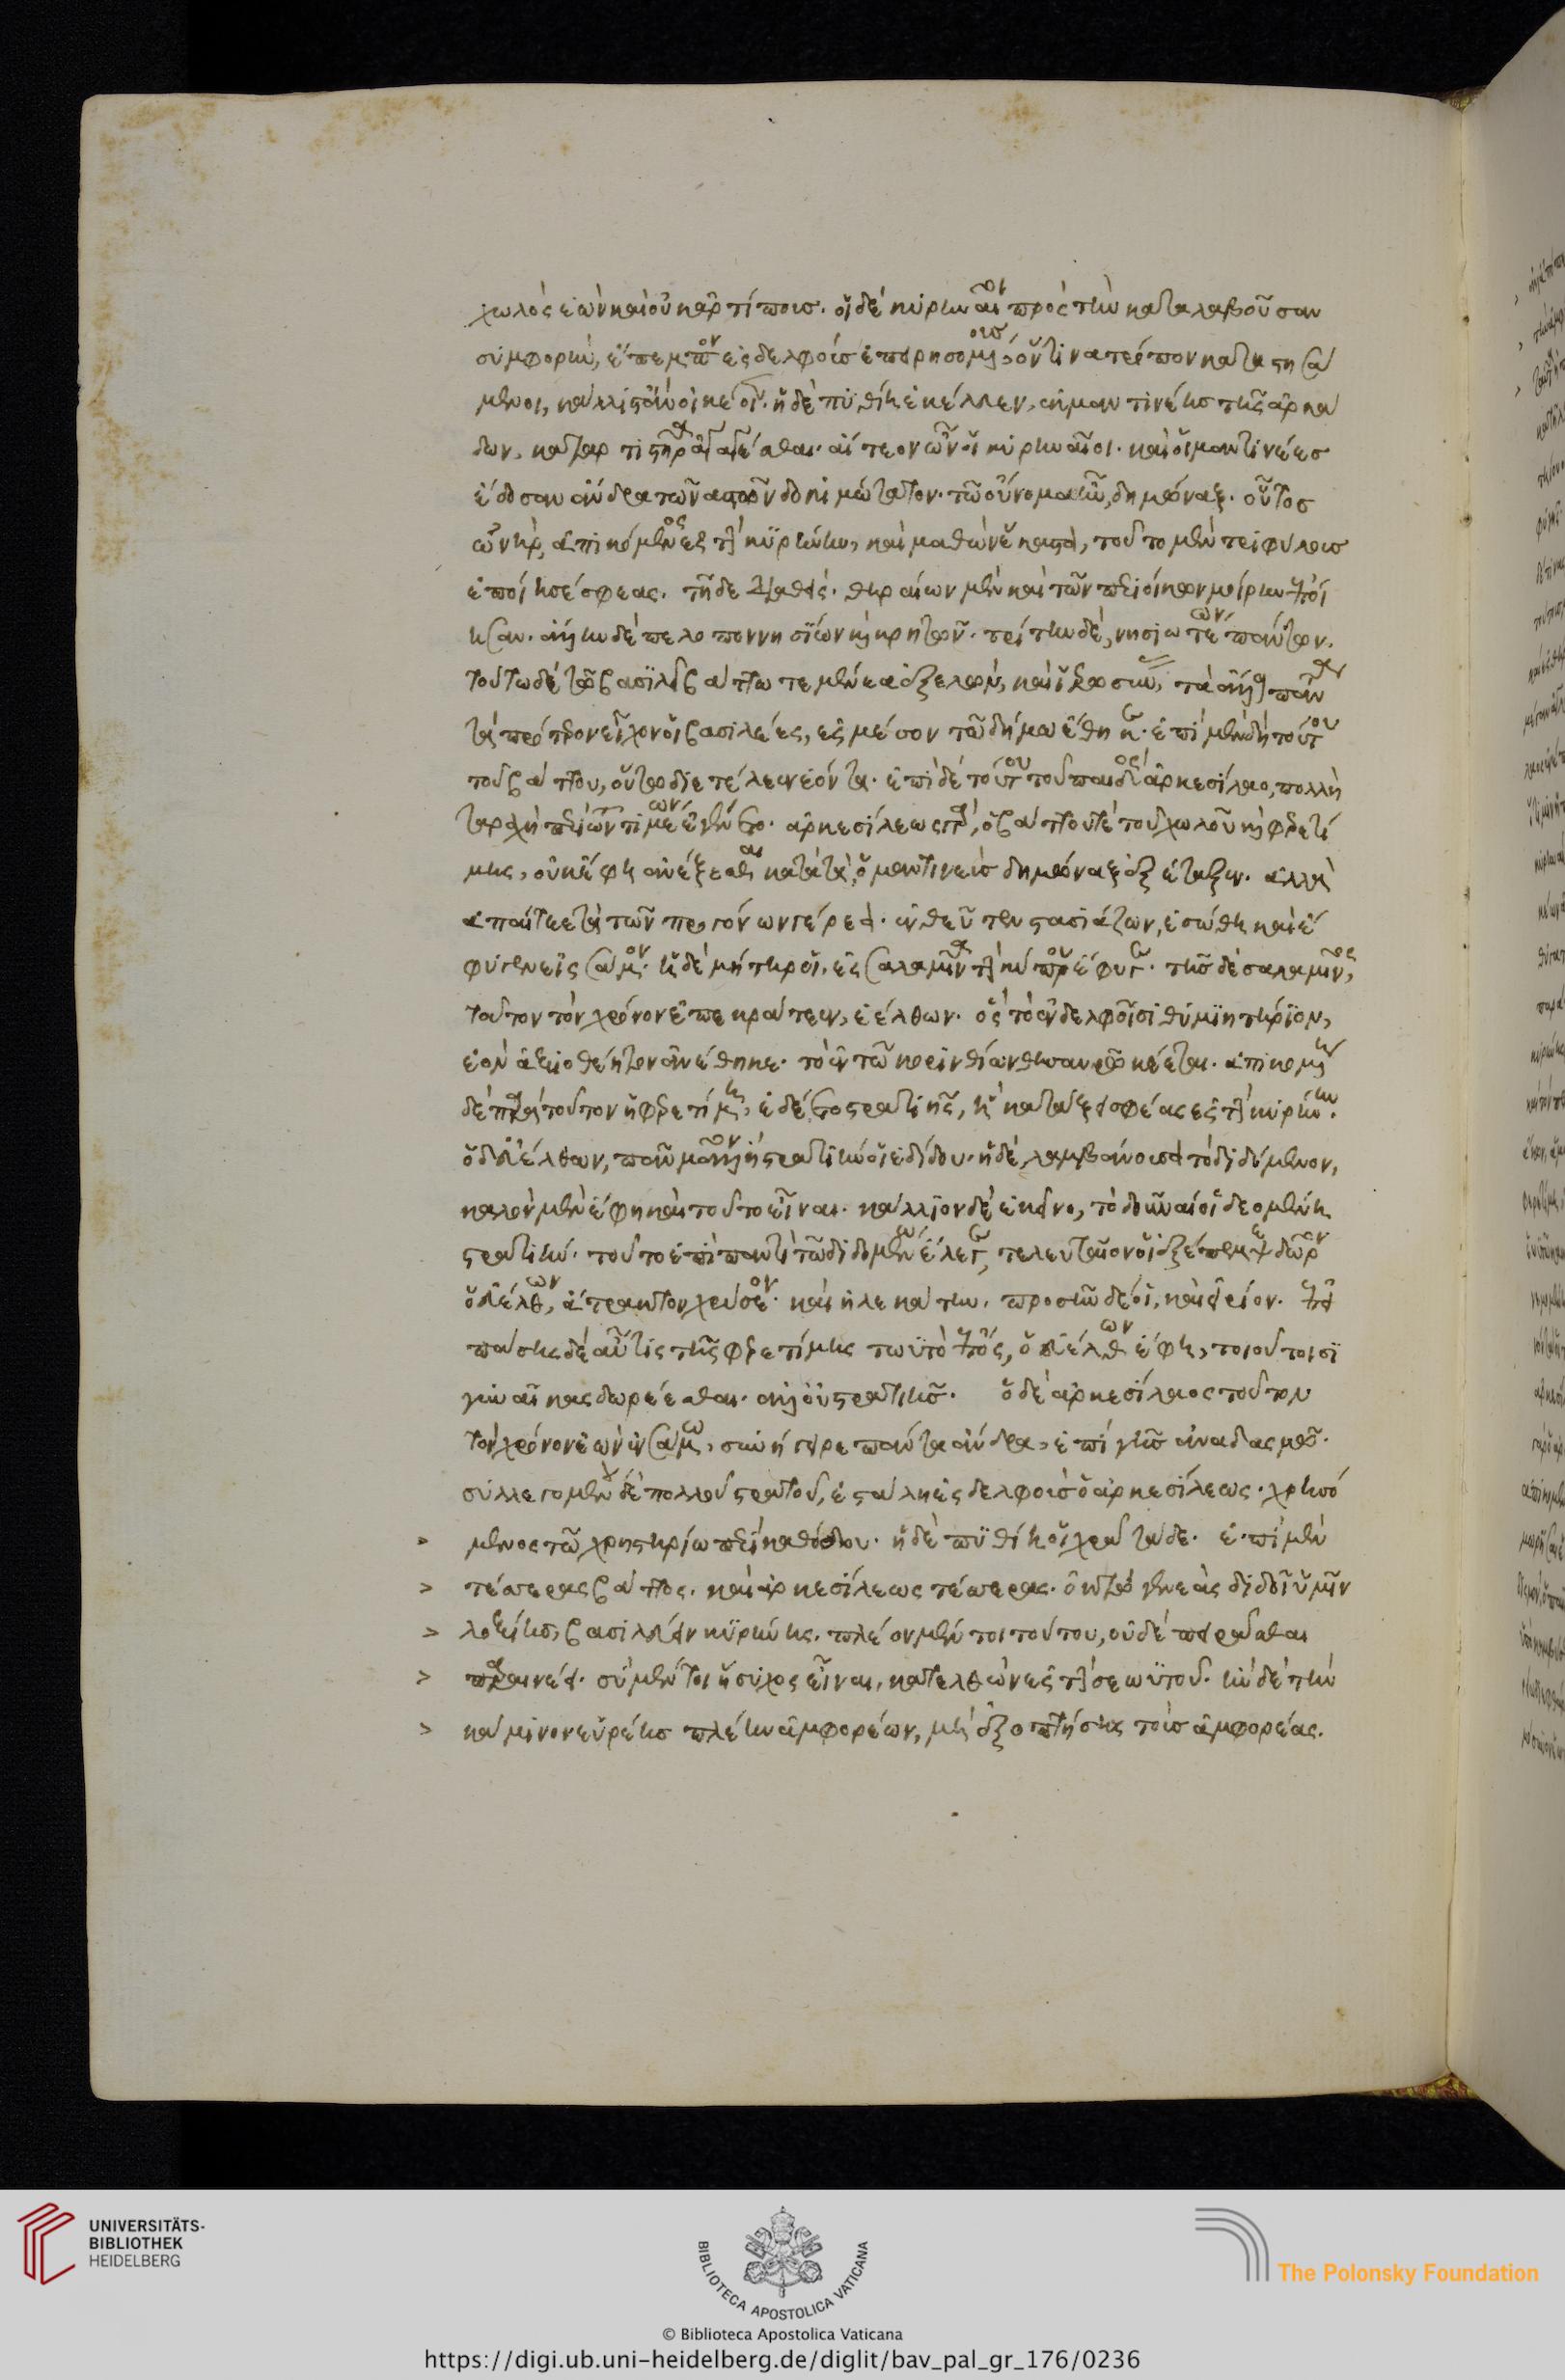 χωλὸς ἐὼν καὶ οὐκ ἀρτίπους. οἱ δὲ κυρηναῖοι πρὸς τὴν καταλαβοῦσαν
συμφορὴν, ἔπεμπον ἐς δελφοὺς ἐπειρησομένους, ὅντινα τρόπον καταστησά
μενοι, κάλλιστα ἂν οἰκέοιεν. ἡ δὲ πυθίη ἐκέλευεν, ἐκ μαντινέης τῆς ἀρκά
δων, καταρτιστῆρα ἀγαγέσθαι. αἴτεον ὦν οἱ κυρηναῖοι. καὶ οἱ μαντινέες
ἔδοσαν ἄνδρα τῶν ἀστῶν δοκιμώτατον. τῶ οὔνομα ἦν, δημῶναξ. οὗτος
ὧνὴρ, ἀπικόμενος ἐς τὴν κυρήνην, καὶ μαθὼν ἕκαστα, τοῦτο μὲν τριφύλους
ἐποίησέ σφεας. τῆδε διαθείς. θηραίων μὲν καὶ τῶν περιοίκων μοίρην ἐποί
ησαν. ἄλλην δὲ πελοποννησίων καὶ κρητῶν. τρίτην δὲ, νησιωτέων πάντων.
τοῦτο δὲ τῶ βασιλέι βάττω τεμένεα ἐξελὼν, καὶ ἱρωσύνας, τὰ ἄλλα πάν
τα τὰ πρότερον εἶχον οἱ βασιλέες, ἐς μέσον τῶ δήμω ἔθηκε. ἐπὶ μὲν δὴ τούτου
τοῦ βάττου, οὕτω διετέλεε ἐόντα. ἐπὶ δὲ τούτου τοῦ παιδὸς ἀρκεσίλεω, πολλὴ
ταραχὴ περὶ τῶν τιμέων ἐγένετο. ἀρκεσίλεως γὰρ, ὁ βάττου τὲ τοῦ χωλοῦ καὶ φερετί
μης, οὐκ ἔφη ἀνέξεσθαι κατὰ τὰ, ὁ μαντινεὺς δημῶναξ ἐξέταξεν. ἀλλὰ
ἀπαίτεε τὰ τῶν προγόνων γέρεα. ἐνθεῦτεν στασιάζων, ἑσώθη καὶ ἔ
φυγεν εἰς σάμον. ἡ δὲ μήτηρ οἱ, ἐς σαλαμῖνα τὴν κύπρου ἔφυγε. τῆς δὲ σαλαμῖνος,
τοῦτον τὸν χρόνον ἐπεκράτεεν, εὐέλθων. ὃς τὸ ἐν δελφοῖσι θυμιητήριον,
ἐὸν ἀξιοθέητον ἀνέθηκε. τὸ ἐν τῶ κορινθίων θησαυρῶ κέεται. ἀπικομένη
δὲ παρὰ τοῦτον ἡ φερετίμη, ἐδέετο στρατιῆς, ἣ κατάξει σφέας ἐς τὴν κυρήνην.
ὁ δὲ εὐέλθων, πᾶν μᾶλλον ἢ στρατιήν οἱ ἐδίδου. ἡ δὲ, λαμβάνουσα τὸ διδόμενον,
καλὸν μὲν ἔφη καὶ τοῦτο εἶναι. κάλλιον δὲ ἐκεῖνο, τὸ δοῦναί οἱ δεομένη
στρατιήν. τοῦτο ἐπὶ παντὶ τῶ διδομένω ἔλεγε, τελευταῖόν οἱ ἐξέπεμψε δῶρον
ὁ εὐέλθων, ἄτρακτον χρύσεον. καὶ ἠλακάτην. προσῆν δέ οἱ, καὶ εἴριον. ἐπει
πάσης δὲ αὖτις τῆς φερετίμης τωυτὸ ἔπος, ὁ εὐέλθων ἔφη, τούτοισι
γυναῖκας δωρέεσθαι. ἀλλ' οὐ στρατιῆ. ὁ δὲ ἀρκεσίλαος τοῦτον
τὸν χρόνον ἐὼν ἐν σάμω, συνήγειρε πάντα ἄνδρα, ἐπὶ γῆς ἀναδασμῶ.
συλλεγομένου δὲ πολλοῦ στρατοῦ, ἐστάλη ἐς δελφοὺς ὁ ἀρκεσίλεως. χρησό
> μενος τῶ χρηστηρίω περὶ καθόδου. ἡ δὲ πυθίη οἱ χρᾶ τάδε. ἐπὶ μὲν
> τέσσερας βάττους. καὶ ἀρκεσίλεως τέσσερας. ὀκτὼ γενεὰς διδοῖ ὑμῖν
> λοξίης, βασιλεύειν κυρήνης. πλέον μέν τοι τούτου, οὐδὲ πειρᾶσθαι
> παραινέει. σὺ μέντοι ἥσυχος εἶναι, κατελθὼν ἐς τὴν σεωυτοῦ. ἢν δὲ τὴν
> κάμινον εὑρέης πλέην ἀμφορέων, μὴ ἐξοπτήσης τοὺς ἀμφορέας.
UNIVERSITÄTS-
BIBLIOTHEK
HEIDELBERG
BIBLIOTECA APOSTOLICA VATICANA
The Polonsky Foundation
© Biblioteca Apostolica Vaticana
https://digi.ub.uni-heidelberg.de/diglit/bav_pal_gr_176/0236